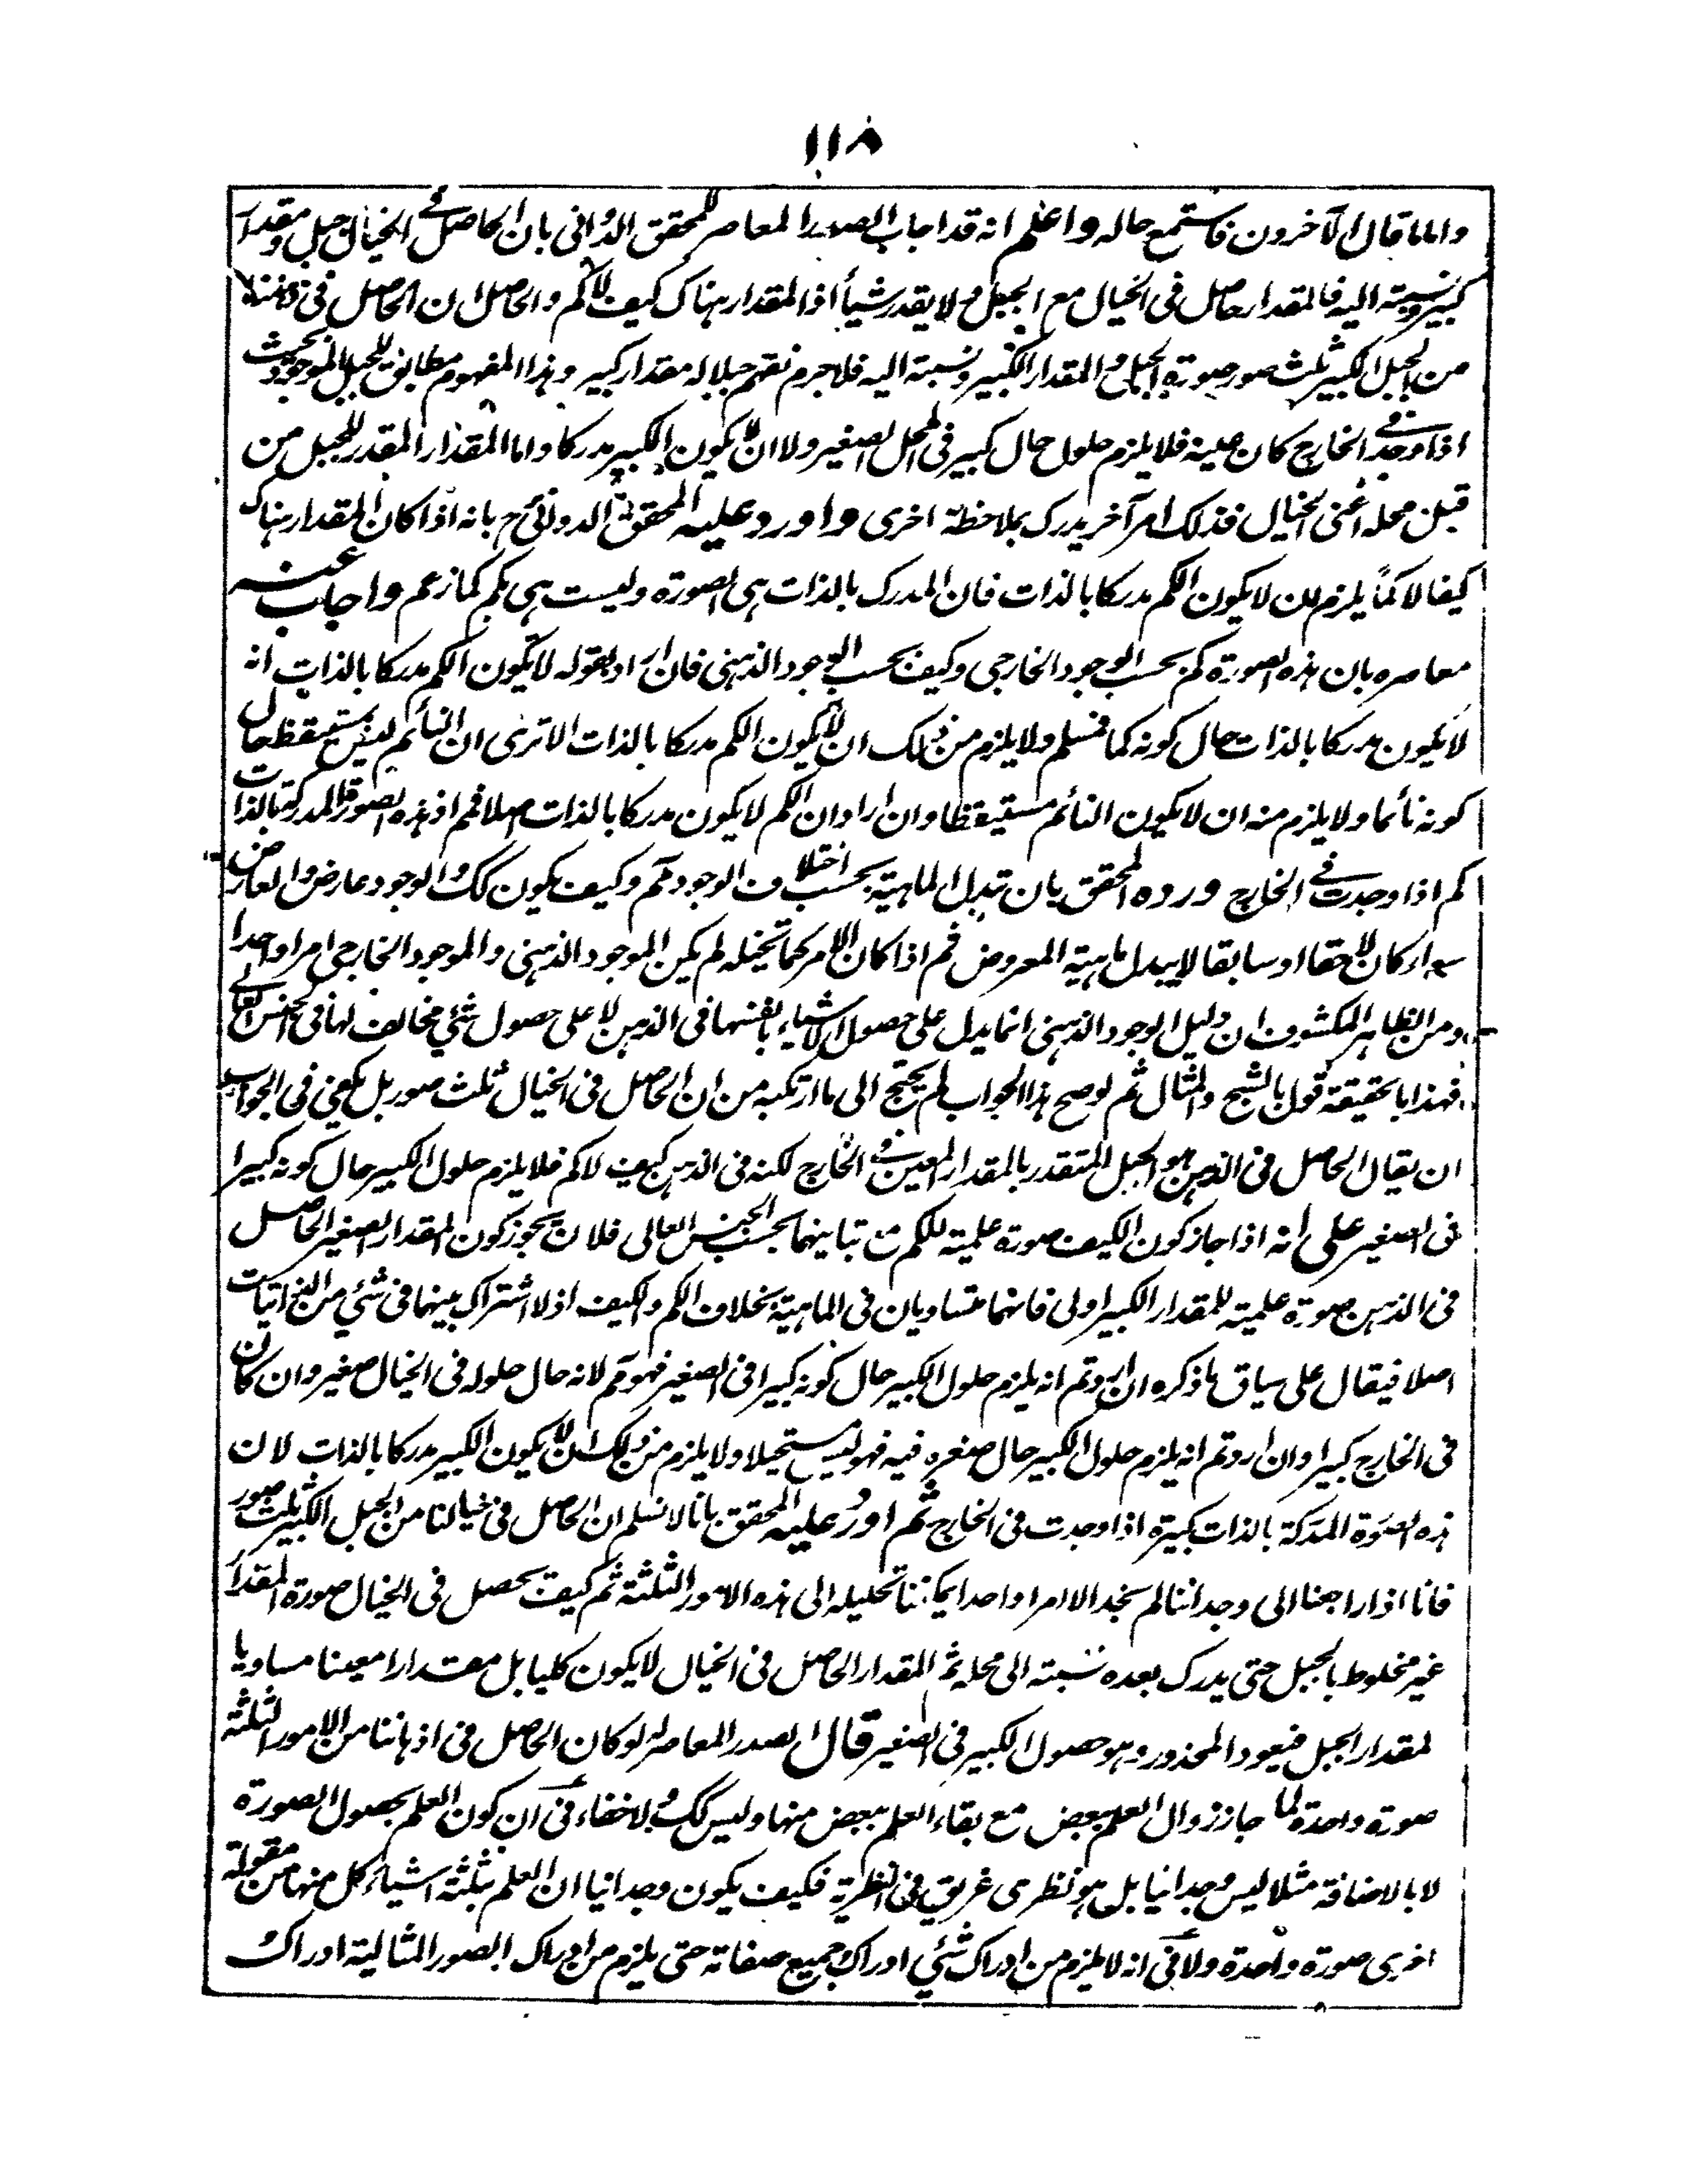 ١١٨
واما ما قال الآخرون فاستمع حاله واعلم انه قد اجاب الصدر المعاصر للمحقق الدوانى بان الحاصل فى الخيال جبل ومقدار
كبير ونسبته اليه فالمقدار حاصل فى الخيال مع الجبل ولا يقدر شيأ اذ المقدار هناك كيف لا كم والحاصل ان الحاصل فى ذهننا
من الجبل الكبير ثلث صور صورة الجبل والمقدار الكبير ونسبته اليه فلا جرم نفهم جبلا له مقدار كبير وهذا المفهوم مطابق للجبل الموجود بحيث
اذا وجد فى الخارج كان عينه فلا يلزم حلول حال كبير فى المحل الصغير ولا ان لا يكون الكبير مدركا واما المقدار المقدر للجبل من
قبل محله اعنى الخيال فذلك امر آخر يدرك بملاحظة اخرى واورد عليه المحقق الدوانى ح بانه اذا كان المقدار هناك
كيفا لا كمّاً يلزم ان لا يكون الكم مدركا بالذات فان المدرك بالذات هى الصورة وليست هى بكم كما زعم واجاب عنه
معاصره بان هذه الصورة كم بحسب الوجود الخارجى وكيف بحسب الوجود الذهنى فان اراد بقوله لا يكون الكم مدركا بالذات انه
لا يكون مدركا بالذات حال كونه كما فمسلم ولا يلزم من ذلك ان لا يكون الكم مدركا بالذات الا ترى ان النائم ليس بمستيقظ حال
كونه نائما ولا يلزم منه ان لا يكون النائم مستيقظا وان اراد ان الكم لا يكون مدركا بالذات اصلا فمم اذ هذه الصورة المدركة بالذات
كم اذا وجدت فى الخارج ورده المحقق بان تبدل الماهية بحسب اختلاف الوجود مم وكيف يكون كك والوجود عارض والعارض
سواء كان لاحقا او سابقا لا يبدل ماهية المعروض ثم اذا كان الامر كما تخيله لم يكن الموجود الذهنى والموجود الخارجى امرا واحدا
ومن الظاهر المكشوف ان دليل الوجود الذهنى انما يدل على حصول الاشياء بانفسها فى الذهن لا على حصول شئ مخالف لها فى الجنس العالى
فهذا بالحقيقة قول بالشبح والمثال ثم لو صح هذا الجواب لم يحتج الى ما ارتكبه من ان الحاصل فى الخيال ثلث صور بل يكفى فى الجواب
ان يقال الحاصل فى الذهن هو الجبل المتقدر بالمقدار المعين فى الخارج لكنه فى الذهن كيف لا كم فلا يلزم حلول الكبير حال كونه كبيرا
فى الصغير على انه اذا جاز كون الكيف صورة علمية للكم مع تباينهما بحسب الجنس العالى فلان يجوز كون المقدار الصغير الحاصل
فى الذهن صورة علمية للمقدار الكبير اولى فانهما متساويان فى الماهية بخلاف الكم والكيف اذ لا اشتراك بينهما فى شئ من الذاتيات
اصلا فيقال على سياق ما ذكره ان اردتم انه يلزم حلول الكبير حال كونه كبيرا فى الصغير فهو مم لانه حال حلوله فى الخيال صغير وان كان
فى الخارج كبيرا وان اردتم انه يلزم حلول الكبير حال صغره فيه فهو ليس مستحيلا ولا يلزم من ذلك ان لا يكون الكبير مدركا بالذات لان
هذه الصورة المدركة بالذات كبيرة اذا وجدت فى الخارج ثم اورد عليه المحقق بانا لا نسلم ان الحاصل فى خيالنا من الجبل الكبير ثلث صور
فانا اذا راجعنا الى وجداننا لم نجد الا امرا واحدا يمكننا تحليله الى هذه الامور الثلثة ثم كيف يحصل فى الخيال صورة المقدار
غير مخلوط بالجبل حتى يدرك بعده نسبته الى محله ثم المقدار الحاصل فى الخيال لا يكون كليا بل مقدارا معينا مساويا
لمقدار الجبل فيعود المحذور وهو حصول الكبير فى الصغير قال الصدر المعاصر له لو كان الحاصل فى اذهاننا من الامور الثلثة
صورة واحدة لما جاز زوال العلم ببعض مع بقاء العلم ببعض منها وليس كك ولا خفاء فى ان كون العلم بحصول الصورة
لا بالاضافة مثلا ليس وجدانيا بل هو نظرى غريق فى النظرية فكيف يكون وجدانيا ان العلم بثلثة اشياء كل منها من مقولة
اخرى صورة واحدة ولا فى انه لا يلزم من ادراك شئ ادراك جميع صفاته حتى يلزم من ادراك الصور المثالية ادراك